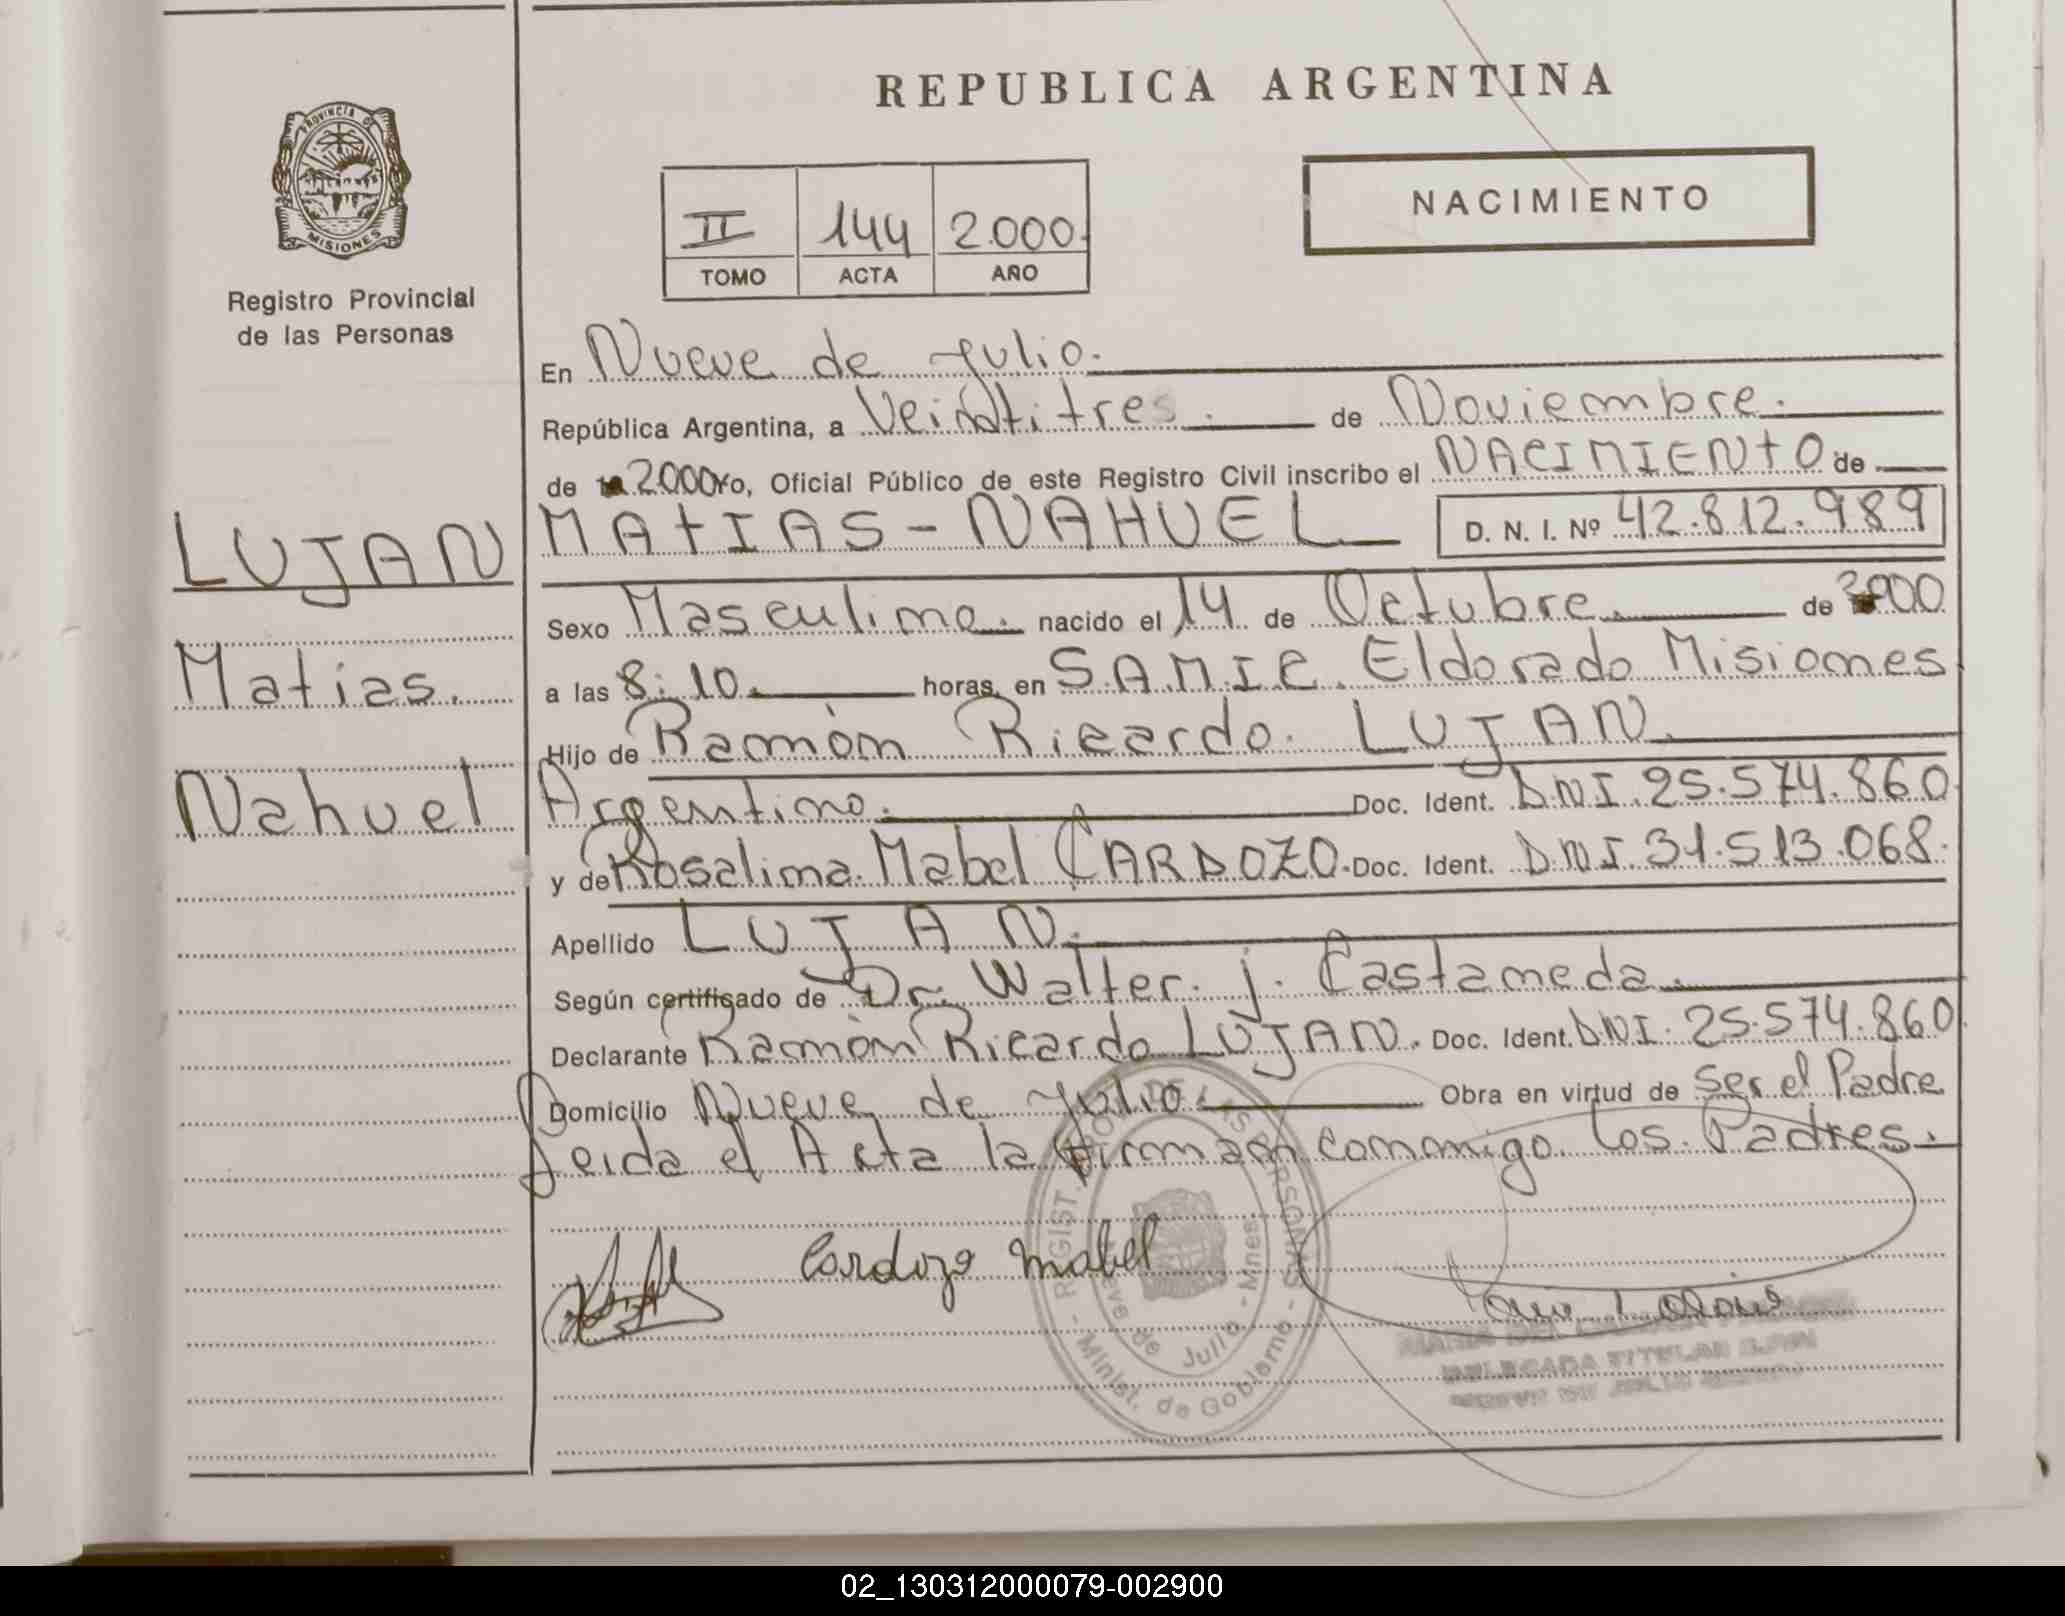 REPUBLICA ARGENTINA
PROVINCIA DE
MISIONES
Registro Provincial
de las Personas
II 144 2.000
TOMO ACTA AÑO
NACIMIENTO
En Nueve de Julio.
República Argentina, a Veintitres. de Noviembre.
de 2000 yo, Oficial Público de este Registro Civil inscribo el NACIMIENTO de
MATIAS - NAHUEL D. N. I. Nº 42.812.989
LUJAN
Matias.
Nahuel
Sexo Masculino. nacido el 14 de Octubre. de 2000
a las 8:10. horas, en S.A.M.I.C. Eldorado Misiones
Hijo de Ramón Ricardo. LUJAN.
Argentino. Doc. Ident. DNI. 25.574.860
y de Rosalina Mabel CARDOZO. Doc. Ident. DNI. 31.513.068.
Apellido LUJAN.
Según certificado de Dr. Walter. j. Castaneda.
Declarante Ramón Ricardo LUJAN. Doc. Ident. DNI. 25.574.860
Domicilio Nueve de Julio. Obra en virtud de Ser el Padre
Leida el Acta la firman conmigo los Padres.
Cardozo Mabel
REGIST. DE LAS PERSONAS
Nueve de Julio - Mnes
- Minist. de Gobierno -
DELEGADA TITULAR
NUEVE DE JULIO
02_130312000079-002900